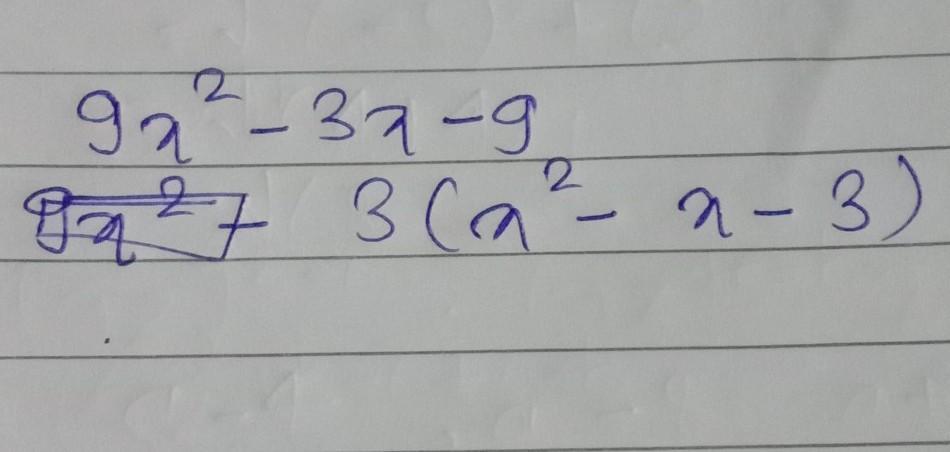 9x² - 3x - 9
3(x² - x - 3)